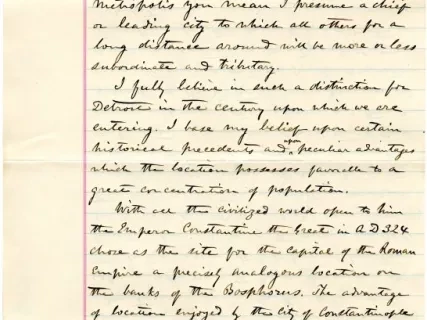 Metropolis you mean I presume a chief
or leading city to which all others for a
long distance around will be more or less
subordinate and tributary.
I fully believe in such a distinction for
Detroit in the century upon which we are
entering. I base my belief upon certain
historical precedents and upon peculiar advantages
which the location possesses favorable to a
great concentration of population.
With all the civilized world open to him
the Emperor Constantine the Great in A.D 324
chose as the site for the Capital of the Roman
Empire a precisely analogous location on
the banks of the Bosphorus. The advantage
of location enjoyed by the City of Constantinople